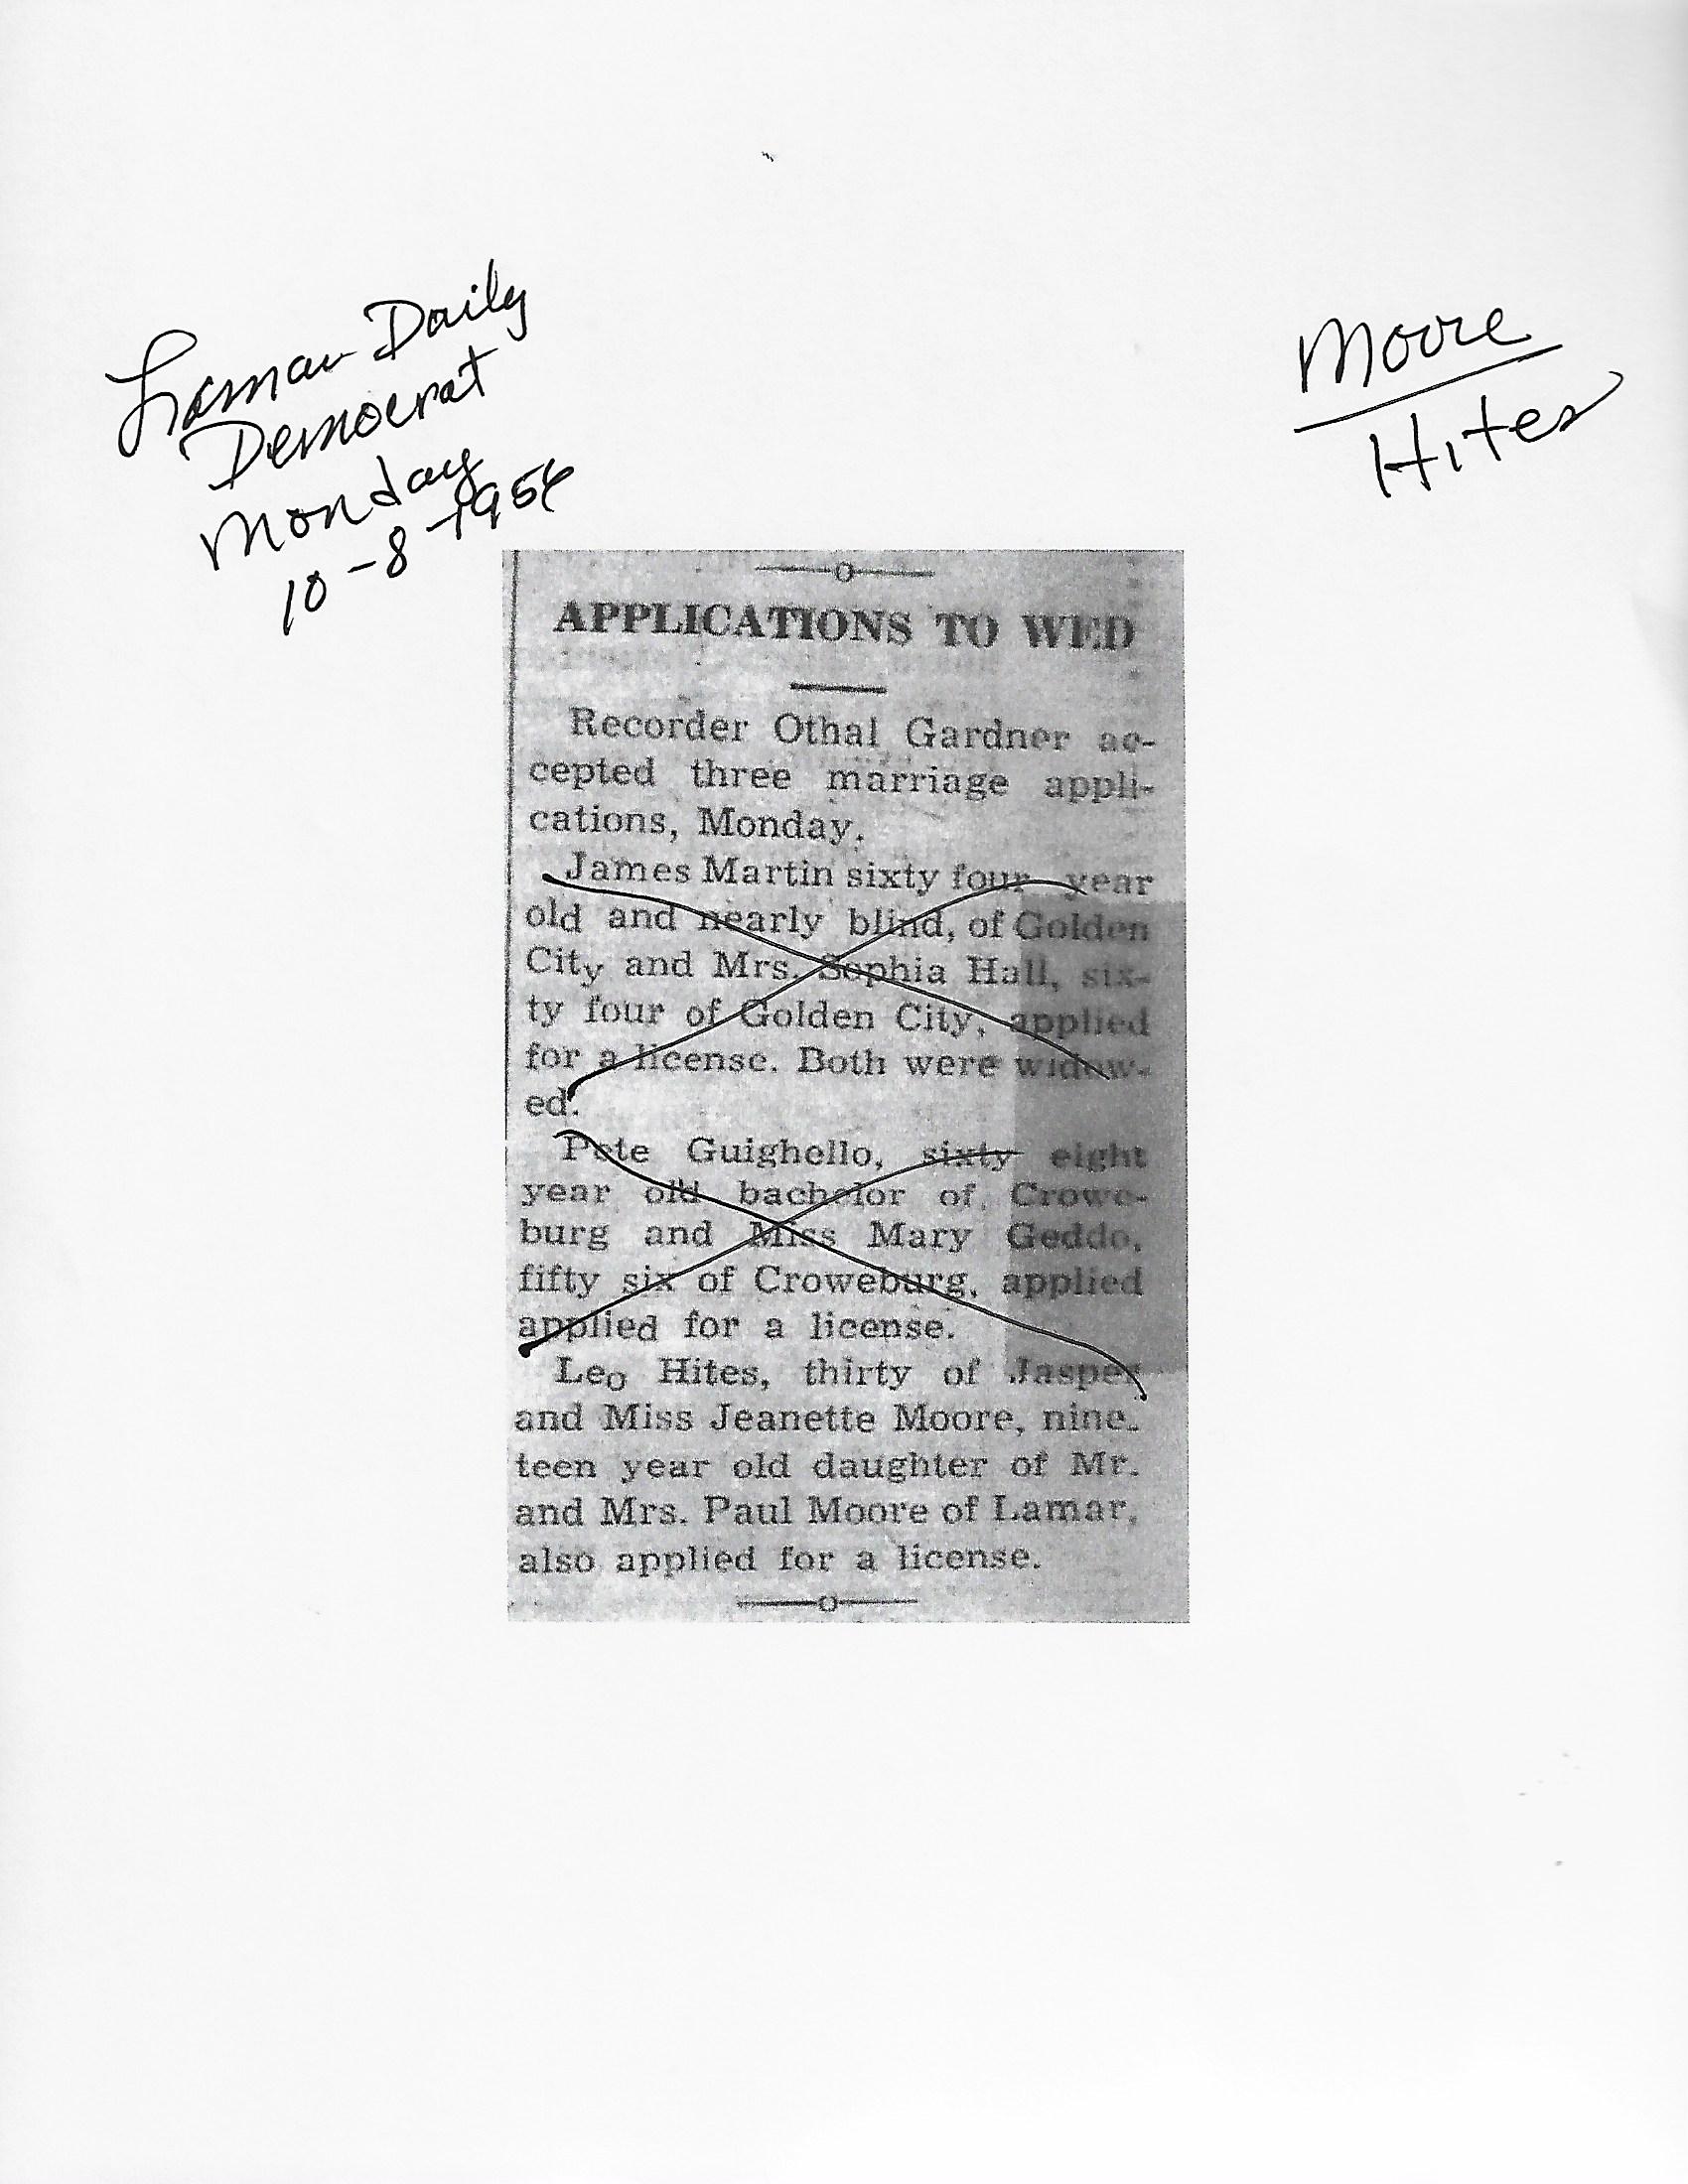 Lamar Daily
Democrat
Monday
10-8-1956
Moore
Hites
APPLICATIONS TO WED
Recorder Othal Gardner ac-
cepted three marriage appli-
cations, Monday.
James Martin sixty four year
old and nearly blind, of Golden
City and Mrs. Sophia Hall, six-
ty four of Golden City, applied
for a license. Both were widow-
ed.
Pete Guighello, sixty eight
year old bachelor of Crowe-
burg and Miss Mary Geddo,
fifty six of Croweburg, applied
applied for a license.
Leo Hites, thirty of Jasper
and Miss Jeanette Moore, nine-
teen year old daughter of Mr.
and Mrs. Paul Moore of Lamar,
also applied for a license.